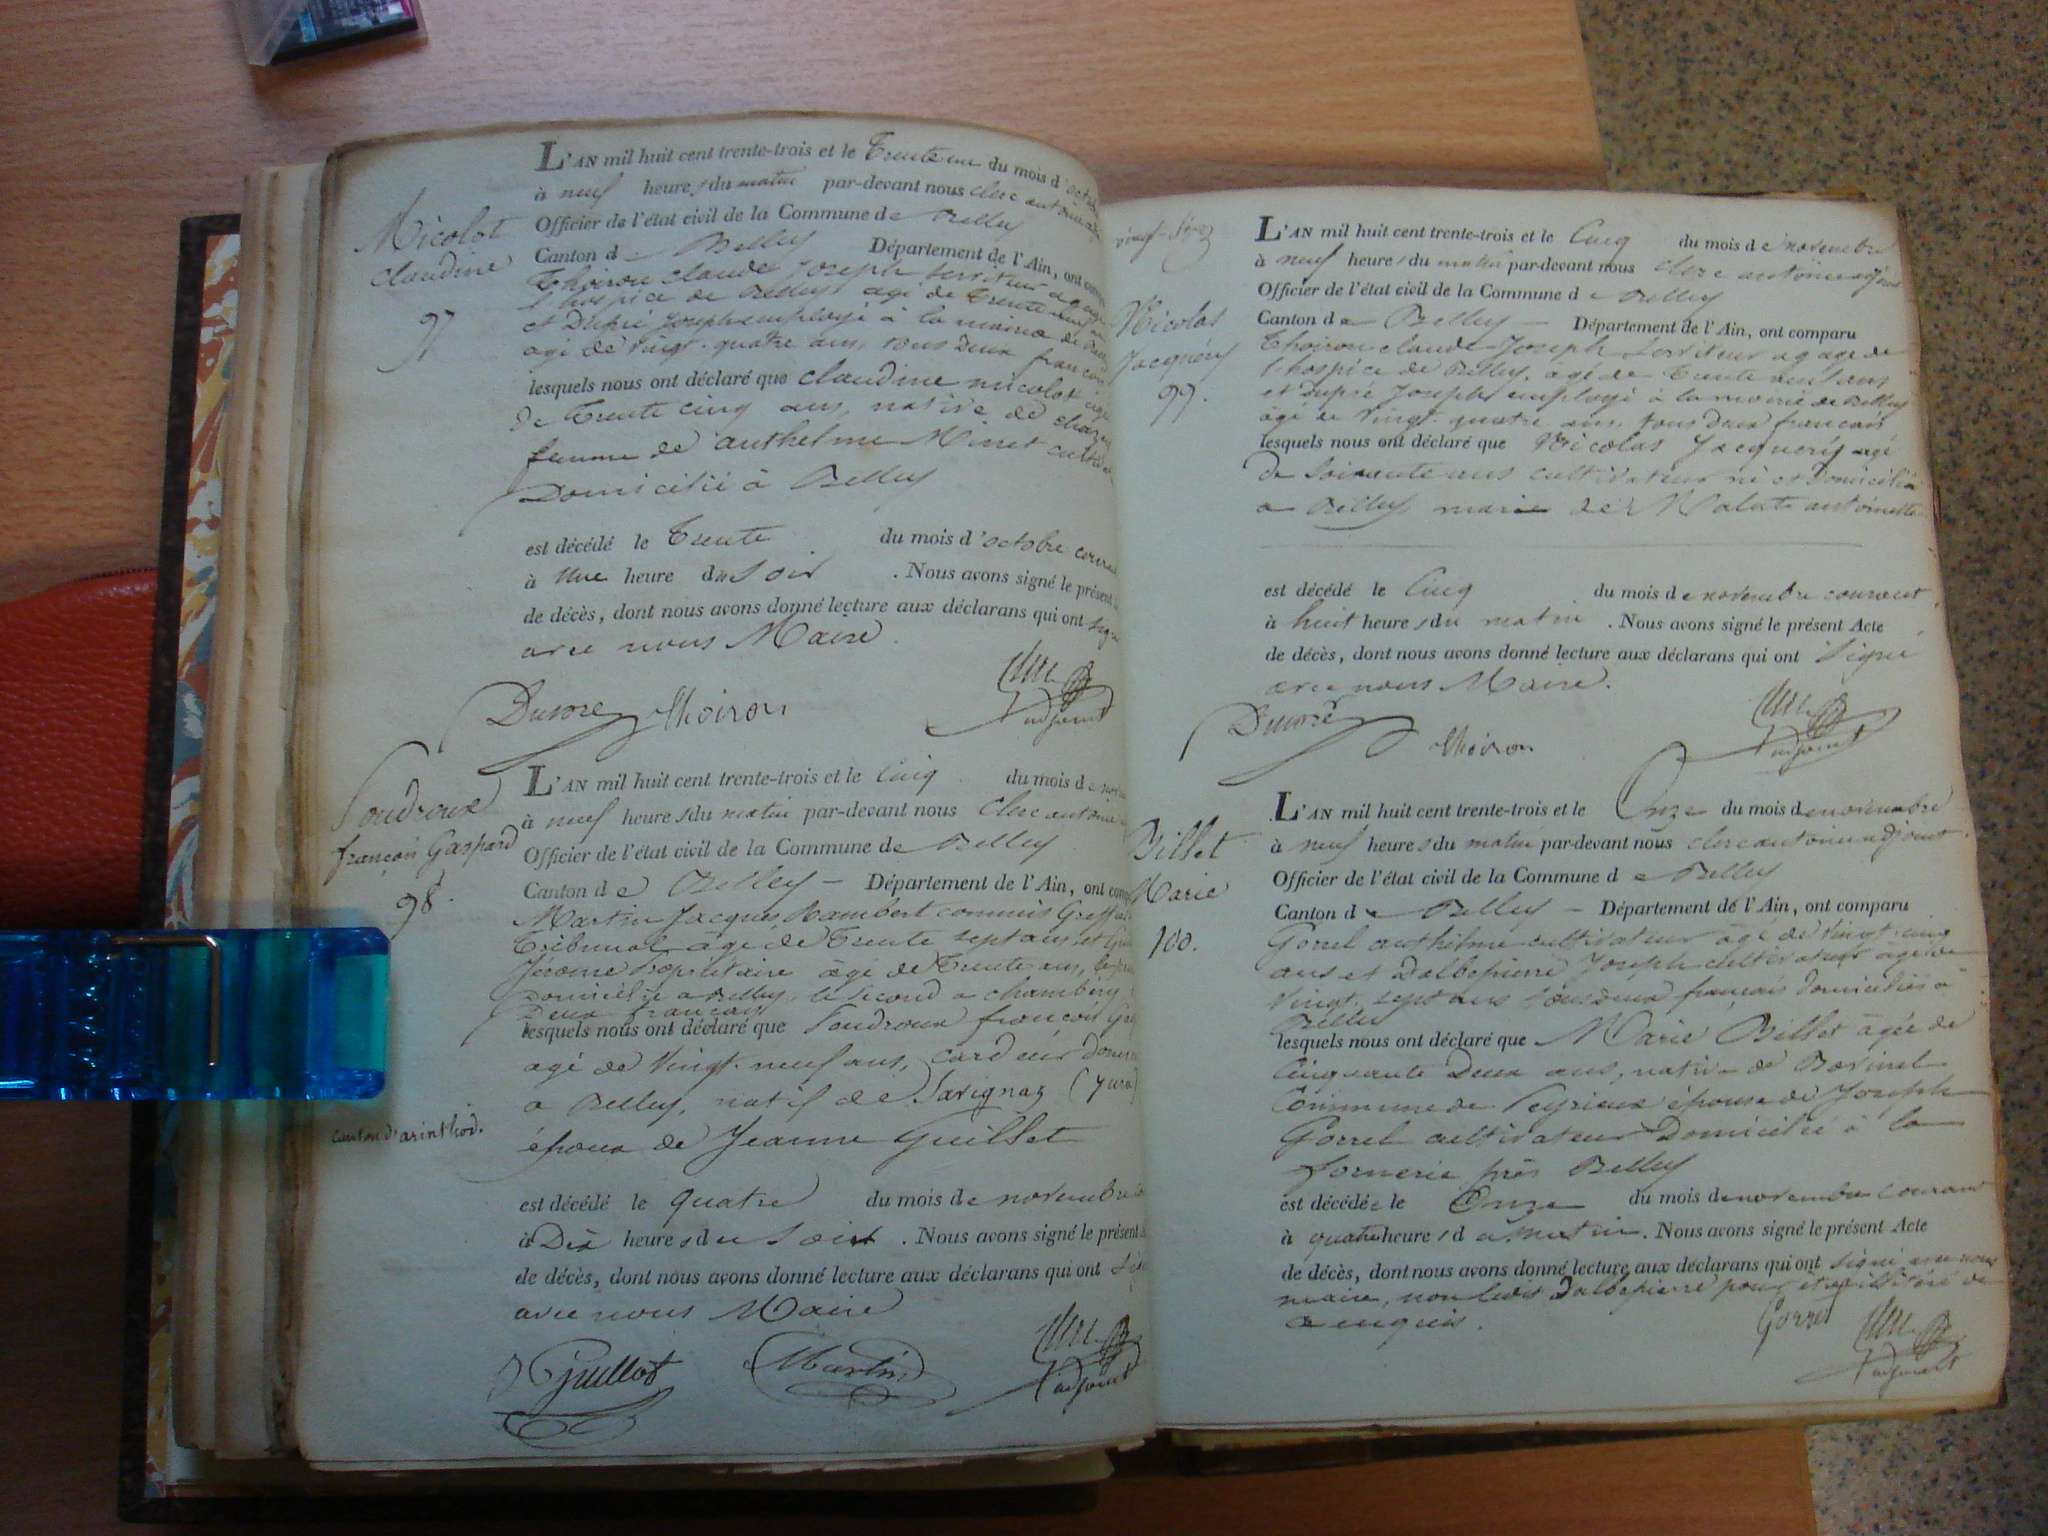 L'AN mil huit cent trente-trois et le Trente un du mois d'octobre
à neuf heures du matin par-devant nous clerc antoine
Officier de l'état civil de la Commune de Belley
Canton de Belley Département de l'Ain, ont
Micolot
claudine
97
Thoiron claude Joseph serviteur a gage
l'hospice de Belley, agé de Trente neuf
et Dupré Joseph employé à la mairie de
agé de vingt-quatre ans, tous deux françois
lesquels nous ont déclaré que claudine micolot agée
De Trente cinq ans, native de
femme de anthelme Minet
Domicilié à Belley
est décédé le Trente du mois d'octobre courant
à Une heure du soir . Nous avons signé le présent
de décès, dont nous avons donné lecture aux déclarans qui ont signé
avec nous Maire.
Dupré Thoiron
adjoint
L'AN mil huit cent trente-trois et le Cinq du mois de
à neuf heures du matin par-devant nous Clerc antoine
Officier de l'état civil de la Commune de Belley
Canton de Belley – Département de l'Ain, ont
Poudroux
françois Gaspard
98.
Martin Jacques Rambert commis Greffier
Tribunal âgé de Trente sept ans et
Jérome Propriétaire âgé de Trente ans, le
Domicilié a Belley, le second a chambéry
Deux françois
lesquels nous ont déclaré que Poudroux françois
agé de Vingt-neuf ans, cardeur
a Belley, natif de Savignaz (Jura)
canton d'arinthod.
époux de Jeanne Guillet
est décédé le quatre du mois de novembre
à Dix heures du Soir . Nous avons signé le présent
de décès, dont nous avons donné lecture aux déclarans qui ont
avec nous Maire
Guillot Martin
adjoint
L'AN mil huit cent trente-trois et le Cinq du mois de novembre
à neuf heures du matin par-devant nous clerc antoine adjoint
Officier de l'état civil de la Commune de Belley
Canton de Belley – Département de l'Ain, ont comparu
Nicolas
Jacquéry
99.
Thoiron claude Joseph Serviteur a gage de
l'hospice de Belley, agé de Trente neuf ans
et Dupré Joseph employé à la mairie de Belley
âgé de Vingt-quatre ans, tous deux francais
lesquels nous ont déclaré que Nicolas Jacquéry agé
De soixante ans cultivateur né et Domicilié
a Belley marié de antoinette
est décédé le Cinq du mois de novembre courant
à huit heures du matin . Nous avons signé le présent Acte
de décès, dont nous avons donné lecture aux déclarans qui ont Signé
avec nous Maire.
Dupré
Thoiron
adjoint
L'AN mil huit cent trente-trois et le Onze du mois de novembre
à neuf heures du matin par-devant nous clerc antoine adjoint
Officier de l'état civil de la Commune de Belley
Canton de Belley – Département de l'Ain, ont comparu
Billet
Marie
100.
Gorrel anthelme cultivateur agé de vingt-cinq
ans et Dalbepierre Joseph cultivateur agé de
Vingt-sept ans tous deux français domiciliés à
Belley
lesquels nous ont déclaré que Marie Billet âgée de
Cinquante Deux ans, native de
Commune de Peyrieux épouse de Joseph
Gorrel cultivateur Domicilié à la
fornerie près Belley
est décédée le Onze du mois de novembre courant
à quatre heures du Matin. Nous avons signé le présent Acte
de décès, dont nous avons donné lecture aux déclarans qui ont signé avec nous
maire, non ledit Dalbepierre pour être illitéré de
ce enquis.
Gorrel
adjoint